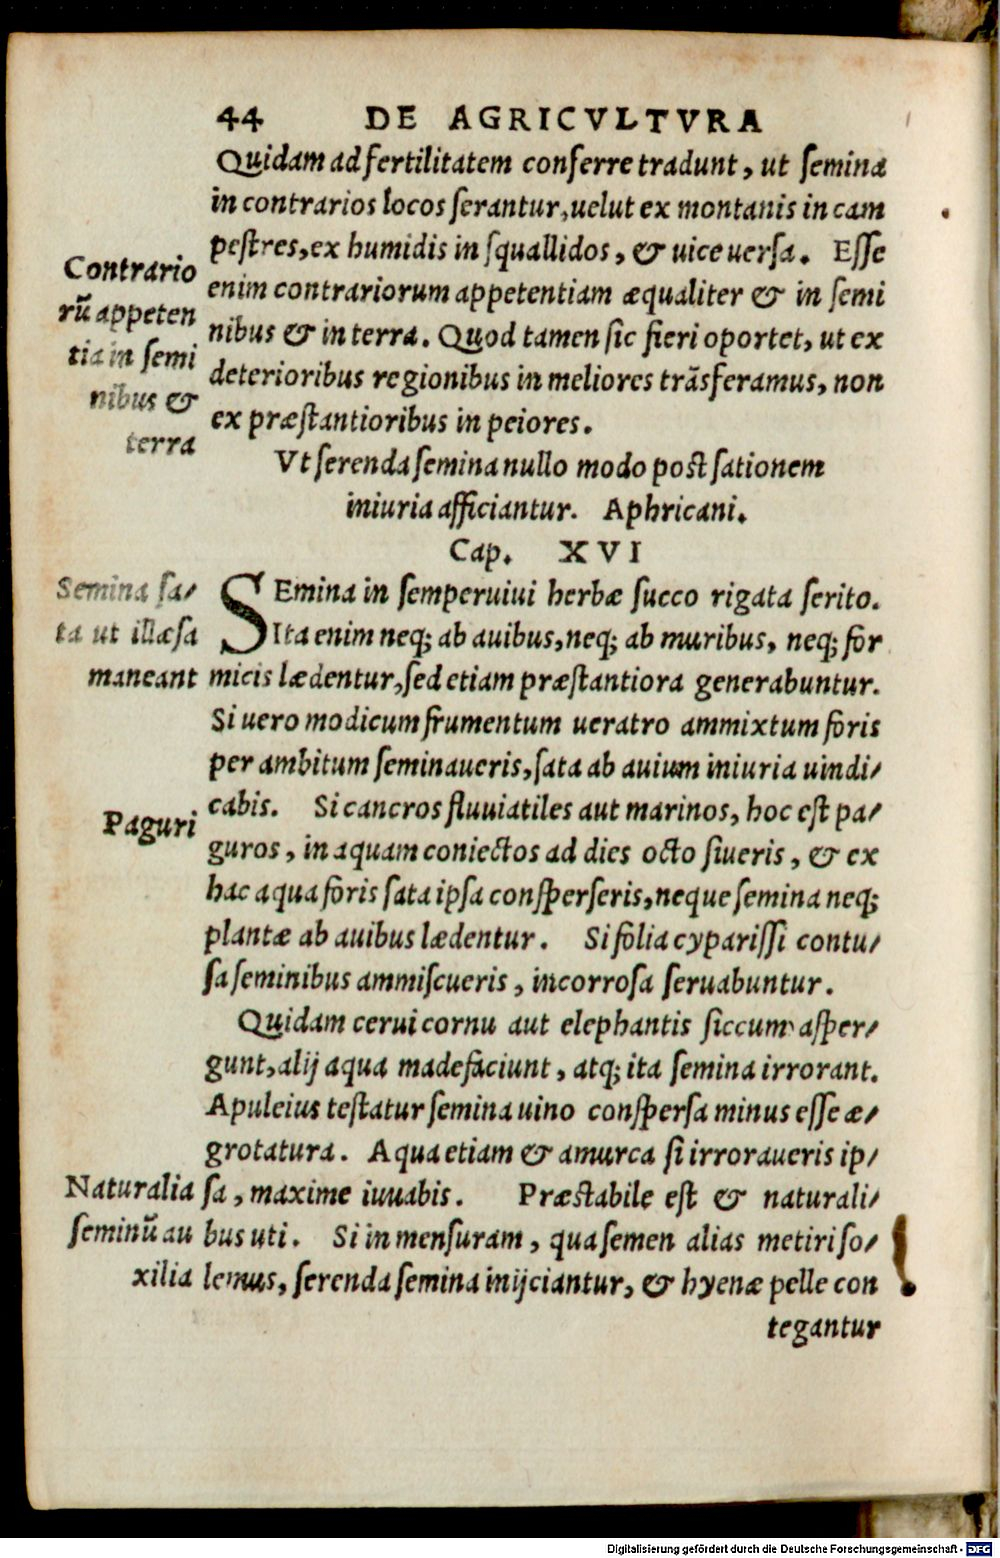 44 DE AGRICVLTVRA
Quidam ad fertilitatem conferre tradunt, ut semina
in contrarios locos serantur, uelut ex montanis in cam
pestres, ex humidis in squallidos, & uice uersa. Esse
enim contrariorum appetentiam æqualiter & in semi
nibus & in terra. Quod tamen sic fieri oportet, ut ex
deterioribus regionibus in meliores trāsferamus, non
ex præstantioribus in peiores.
Contrario
rū appeten
tia in semi
nibus &
terra
Vt serenda semina nullo modo post sationem
iniuria afficiantur. Aphricani.
Cap. XVI
SEmina in semperuiui herbæ succo rigata serito.
Ita enim neq; ab auibus, neq; ab muribus, neq; for
micis lædentur, sed etiam præstantiora generabuntur.
Si uero modicum frumentum ueratro ammixtum foris
per ambitum seminaueris, sata ab auium iniuria uindi/
cabis. Si cancros fluuiatiles aut marinos, hoc est pa/
guros, in aquam coniectos ad dies octo siueris, & ex
hac aqua foris sata ipsa consperseris, neque semina neq;
plantæ ab auibus lædentur. Si folia cyparissi contu/
sa seminibus ammiscueris, incorrosa seruabuntur.
Semina sa/
ta ut illæsa
maneant
Paguri
Quidam cerui cornu aut elephantis siccum asper/
gunt, alij aqua madefaciunt, atq; ita semina irrorant.
Apuleius testatur semina uino conspersa minus esse æ/
grotatura. Aqua etiam & amurca si irroraueris ip/
sa, maxime iuuabis. Præstabile est & naturali/
bus uti. Si in mensuram, qua semen alias metiri so/
lemus, serenda semina inijciantur, & hyenæ pelle con
tegantur
Naturalia
seminū au
xilia
Digitalisierung gefördert durch die Deutsche Forschungsgemeinschaft - DFG